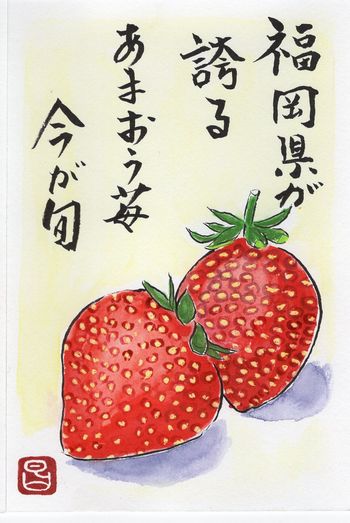 福岡県が
誇る
あまおう苺
今が旬